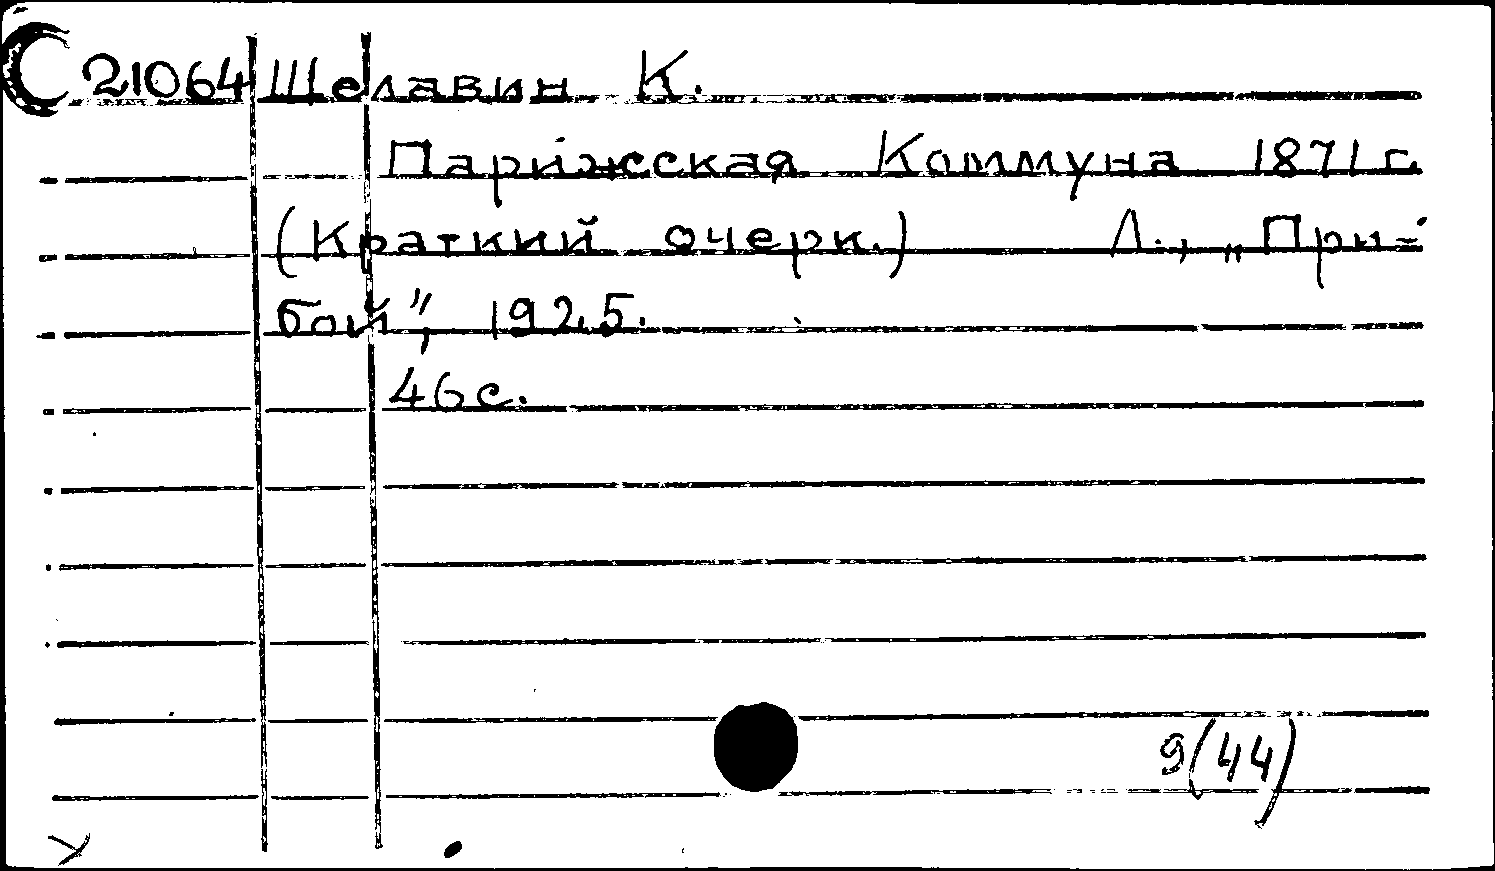 С 21064 Щелавин К.
Парижская Коммуна 1871 г.
(Краткий очерк.) Л., „При-
бой", 1925.
46 с.
9(44)
У